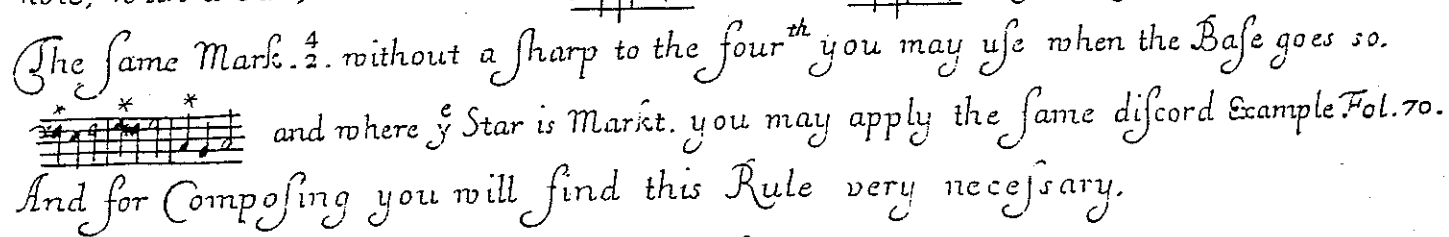 The ſame Mark. 4/2. without a ſharp to the fourth you may uſe when the Baſe goes so.
* * * and where yͤ Star is Markt. you may apply the ſame diſcord Example Fol. 70.
And for Compoſing you will find this Rule very neceſsary.